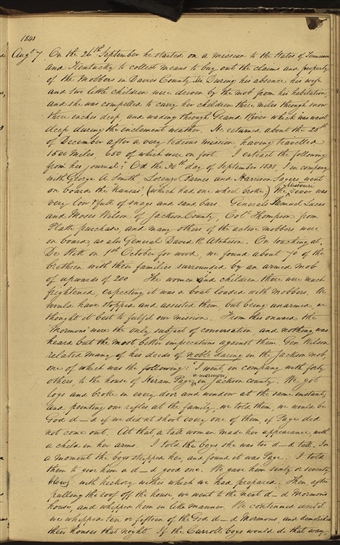 1841
Aug. 7 On the 26th September he started on a mission to the States of Tennessee
and Kentucky to collect means to buy out the claims and property
of the mobbers in Daviess County, Mo. During his absence his wife
and two little children were driven by the mob from his habitation,
and she was compelled to carry her children three miles through snow
three inches deep and wading through Grand River which was waist
deep during the inclement weather. He returned about the 25th
of December after a very tedious mission, having travelled
1500 miles 650 of which were on foot. I extract the following
from his journal: "On the 30th day of September 1838, I in company
with George A. Smith Lorenzo Barnes and Harrison Sagers went
on board the Kansas (which had one wheel broke) the Missouri River was
very low & full of snags and sand bars. Generals Samuel Lucas
and Moses Wilson of Jackson County, Colonel Thompson from
Platte purchase, and many others of the active mobbers were
on board, as also General David R. Atchison. On touching at
De Witt on 1st October for wood, we found about 70 of the
brethren with their families surrounded by an armed mob
of upwards of 200. The women and children there were much
frightened, expecting it was a boat loaded with mobbers. We
would have stopped and assisted them, but being unarmed, we
thought it best to fulfil our mission. From this onward, the
'Mormons' were the only subject of conversation and nothing was
heard but the most bitter imprecations against them. Gen. Wilson
related many of his deeds of noble daring in the Jackson mob,
one of which was the following: "I went in company with forty
others to the house of Hiram Page, a mormon, in Jackson county. We got
logs and broke in every door and window at the same instant;
and pointing our rifles at the family, we told them, we would be
God d—d if we did not shoot every one of them, if Page did
not come out. At that a tall woman made her appearance, with
a child in her arms. I told the boys she was too d—d tall. In
a moment the boys stripped her, and found it was Page. I told
them to give him a d—d good one. We gave him sixty or seventy
blows with hickory withes which we had prepared. Then after
pulling the roof off the house, we went to the next d—d Mormons
house, and whipped him in like manner. We continued until
we whipped ten or fifteen of the God d—d Mormons and demolished
their houses that night. If the Carroll boys would do that way